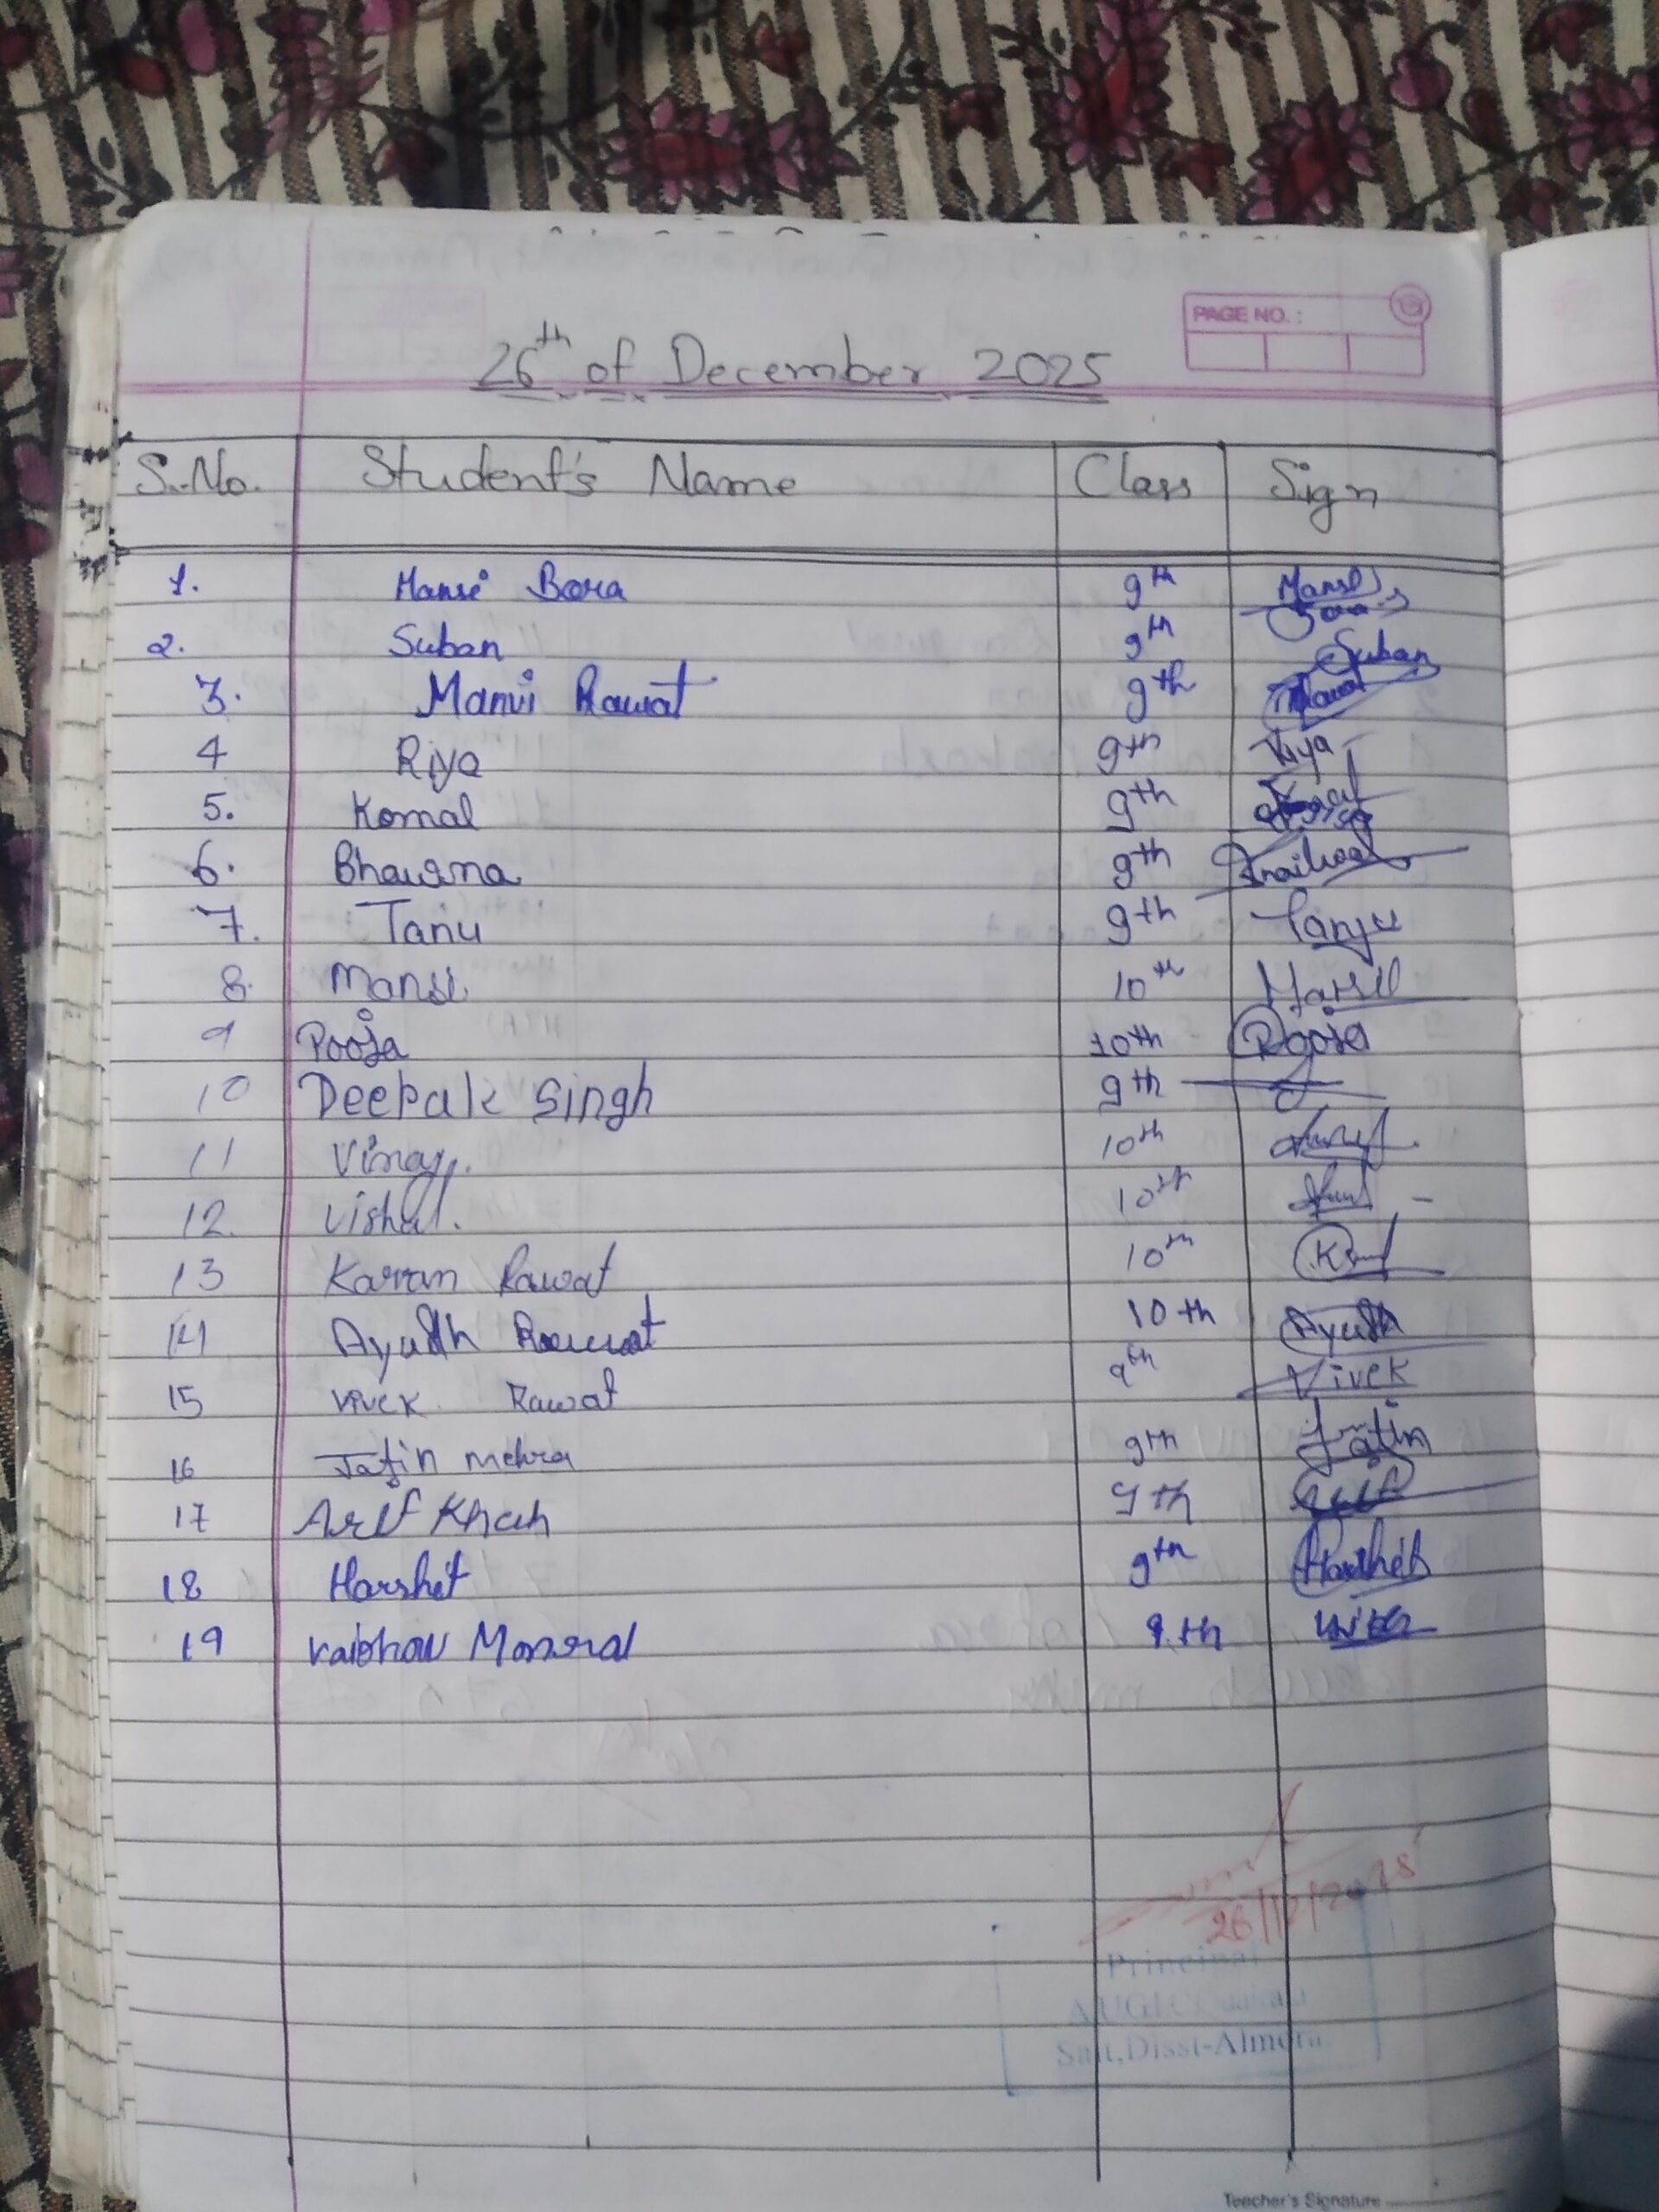 PAGE NO. :
26th of December 2025
S.No. Student's Name Class Sign
1. Mansi Bora 9th Mansi Bora
2. Suban 9th Suban
3. Manvi Rawat 9th Rawat
4 Riya 9th Riya
5. Komal 9th
6. Bhawna 9th
7. Tanu 9th Tanju
8. Mansi 10th Mansi
9 Pooja 10th Pooja
10 Deepak Singh 9th
11 Vinay. 10th
12. Vishal. 10th
13 Karan Rawat 10th
14 Ayush Rawat 10th Ayush
15 Vivek Rawat 9th Vivek
16 Jatin mehra 9th Jatin
17 Arif Khan 9th Arif
18 Harshit 9th Harshit
19 Vaibhav Manral 9th
26/12/2025
Principal
Salt, Disst-Almora
Teacher's Signature